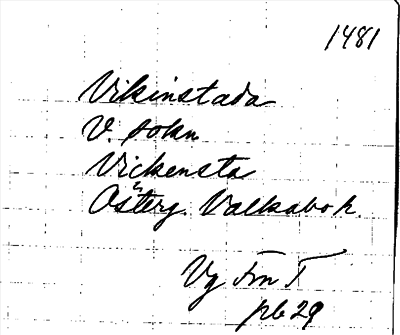 1481
Vikinstada
V. sokn
Vickensta
Österg. Valkabo h.
Vg Fm T
pb 29